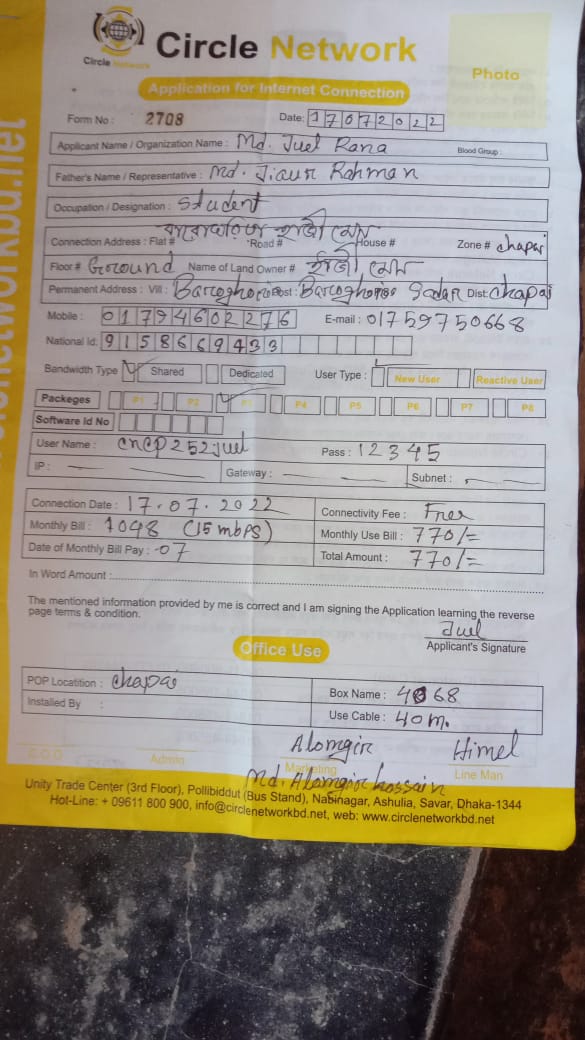 Circle Network
Circle Network
Photo
Application for Internet Connection
Form No : 2708 Date: 17072022
Applicant Name / Organization Name : Md. Juel Rana Blood Group :
Father's Name / Representative : Md. Jiaur Rahman
Occupation / Designation : Student
Connection Address : Flat # Road # House # Zone # chapai
Floor # Goround Name of Land Owner # হাজী
Permanent Address : Vill : Baroghoria Post : Baroghoria Sadar Dist: chapai
Mobile : 01794602276 E-mail : 01759750668
National Id: 9158669433
Bandwidth Type Shared Dedicated User Type : New User Reactive User
Packeges P1 P2 P3 P4 P5 P6 P7 P8
Software Id No
User Name : cncp252juel Pass : 12345
IP : Gateway : Subnet :
Connection Date : 17.07.2022 Connectivity Fee : Free
Monthly Bill : 1048 (15 mbps) Monthly Use Bill : 770/=
Date of Monthly Bill Pay : 07 Total Amount : 770/=
In Word Amount :
The mentioned information provided by me is correct and I am signing the Application learning the reverse
page terms & condition.
Juel
Applicant's Signature
Office Use
POP Locatition : chapai Box Name : 4068
Installed By : Use Cable : 40 m.
Alomgir Himel
C.O.O Admin Marketing Line Man
Md. Alomgir hossain
Unity Trade Center (3rd Floor), Pollibiddut (Bus Stand), Nabinagar, Ashulia, Savar, Dhaka-1344
Hot-Line: + 09611 800 900, info@circlenetworkbd.net, web: www.circlenetworkbd.net